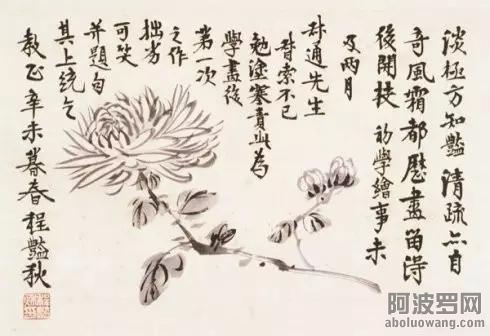 淡極方知豔 清疏亦自
奇風霜都歷盡 留得
後開枝 初學繪事未
及兩月
叔通先生
督索不已
勉塗塞責此為
學畫後
第一次
之作
拙劣
可笑
并題句
其上統乞
教正 辛未暮春程豔秋
阿波罗网
aboluowang.com